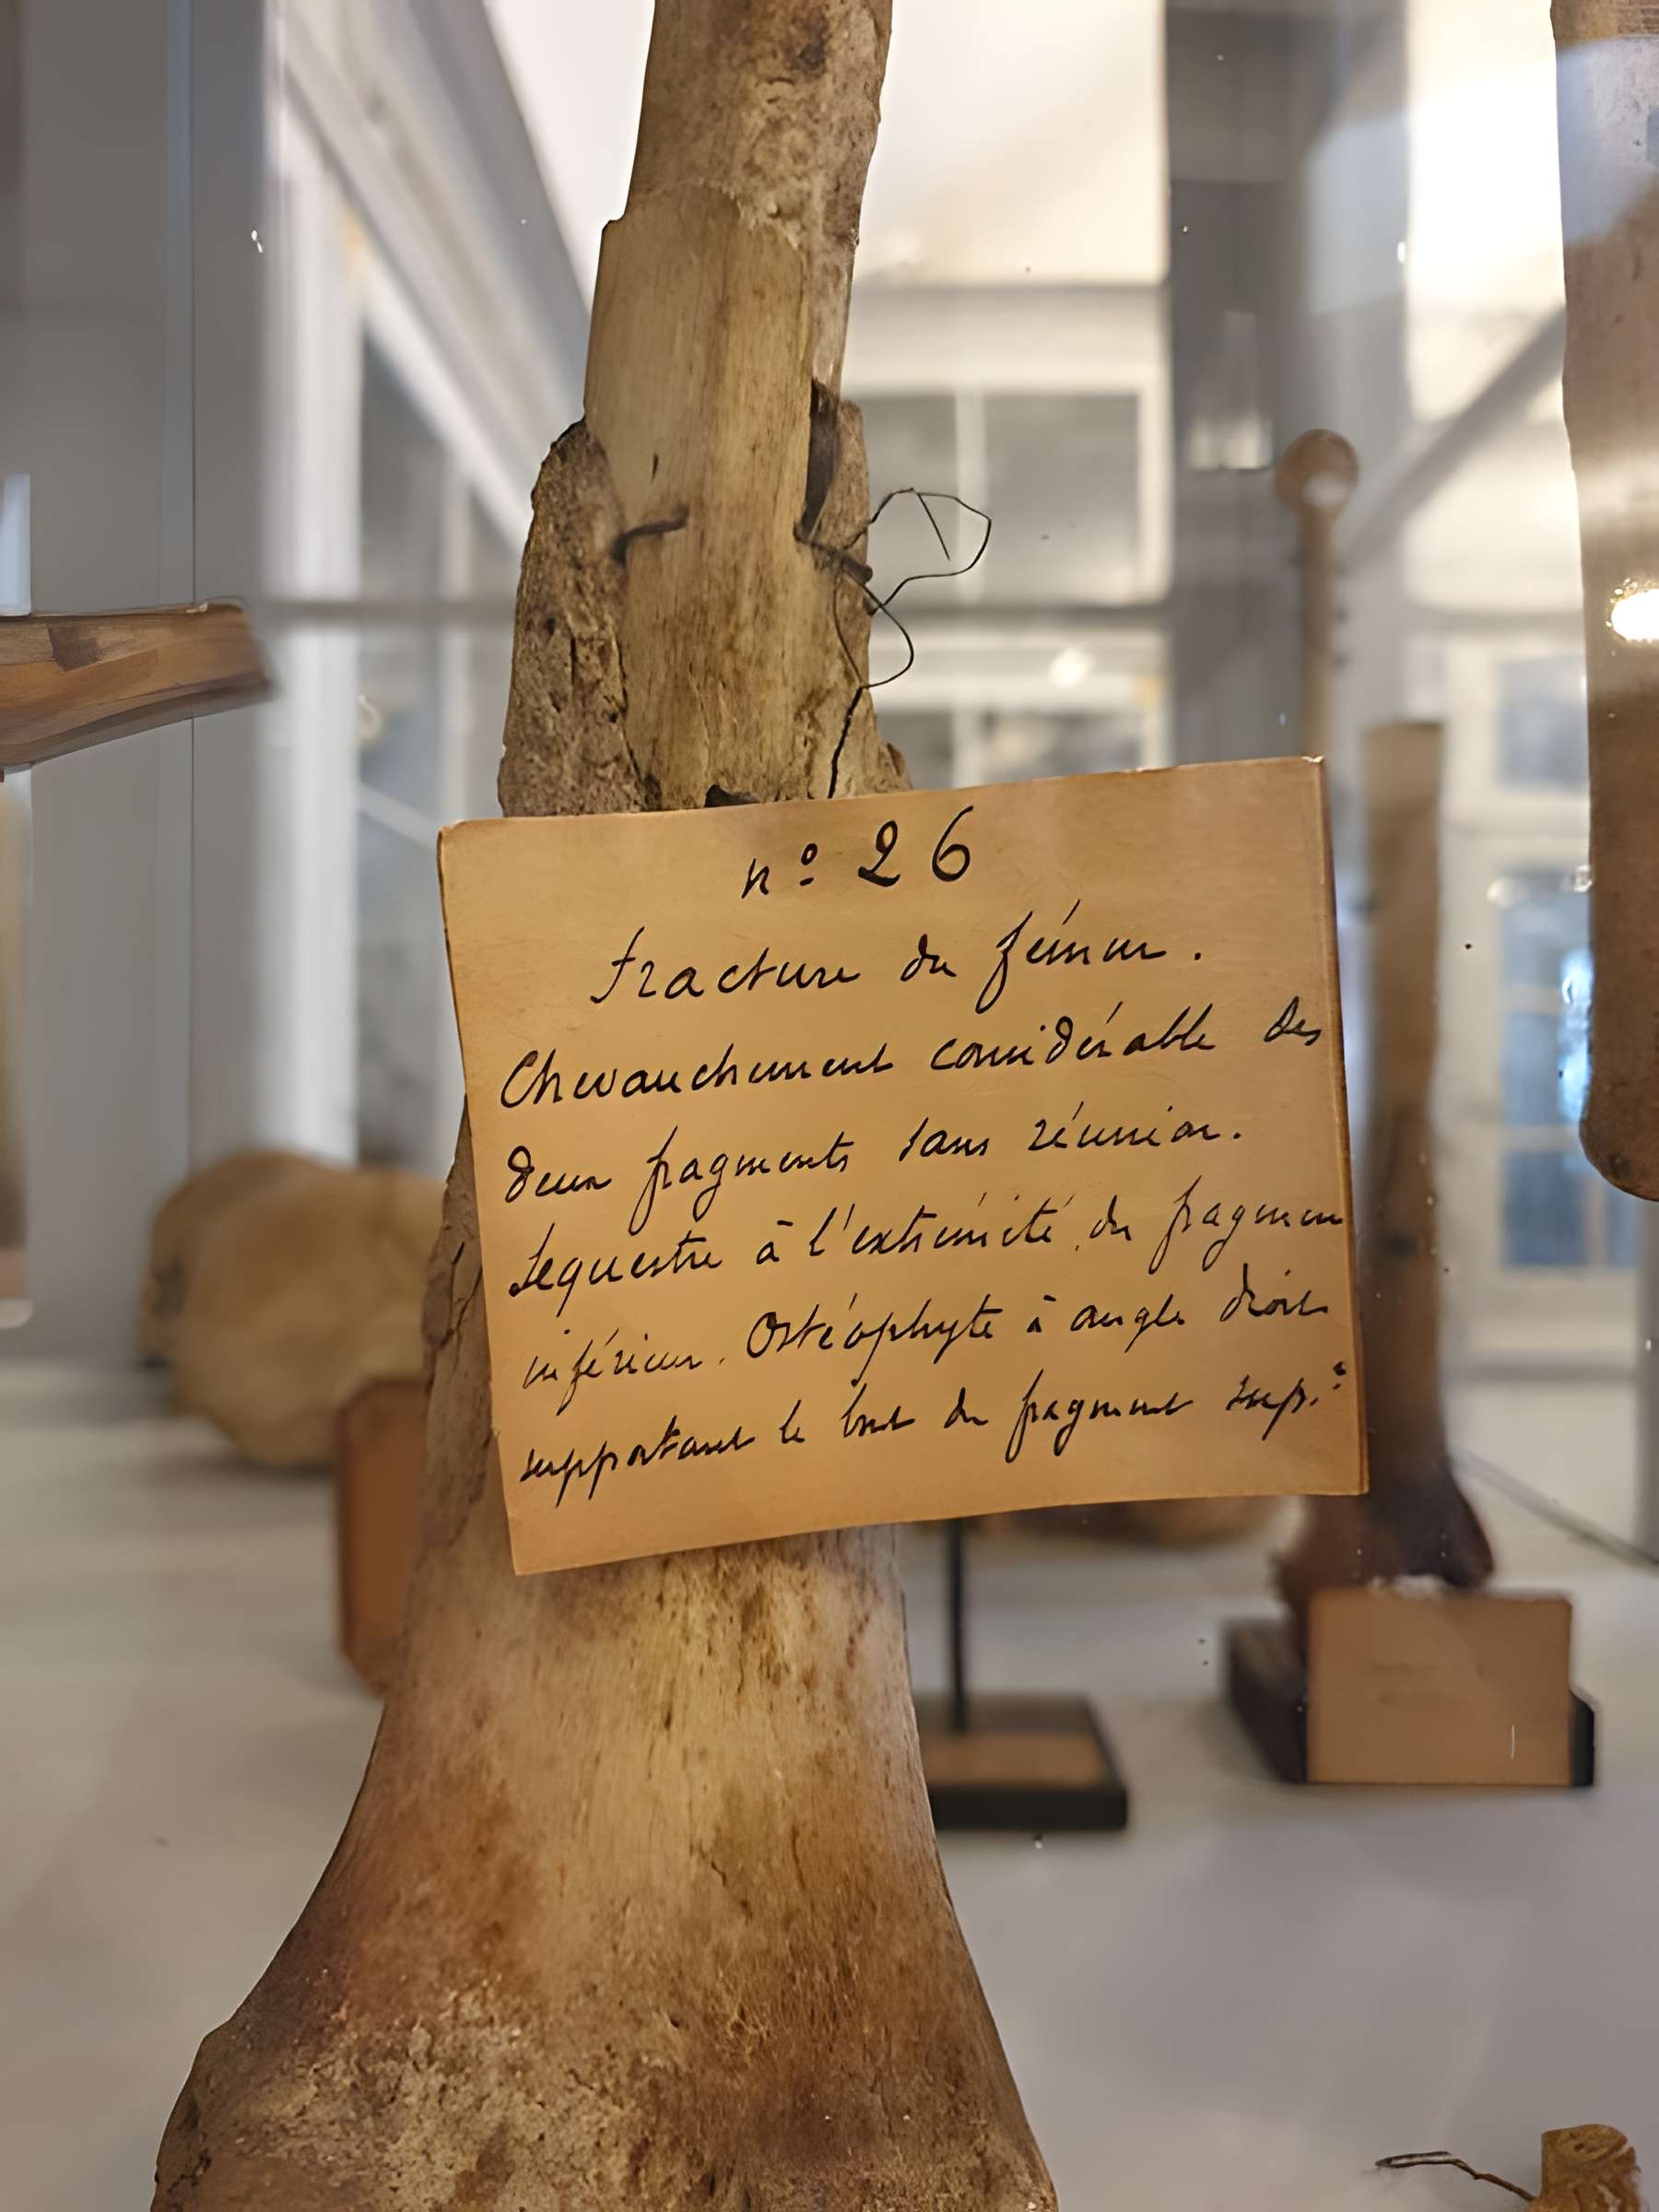 n° 26
fracture du fémur.
Chevauchement considérable des
deux fragments sans réunion.
Sequestre à l'extrémité du fragmen
inférieur. Ostéophyte à angle droit
supportant le bout du fragment sup.r